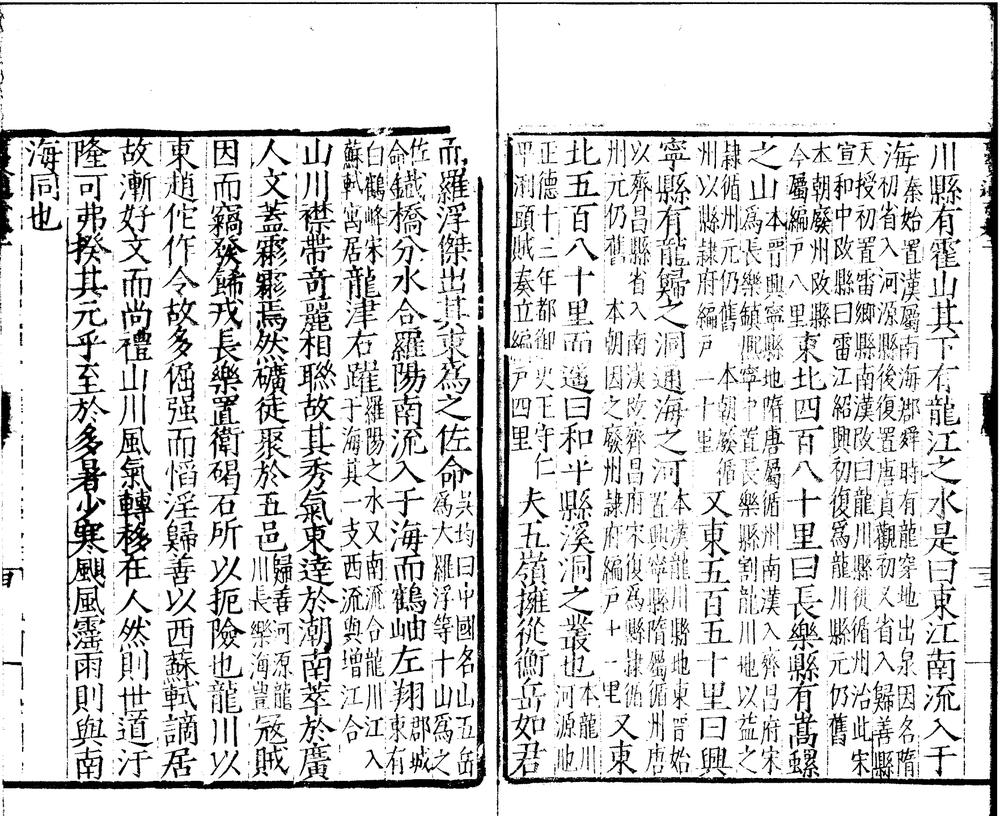 川縣有霍山其下有龍江之水是曰東江南流入于
海秦始置漢屬南海郡舜時有龍穿地出泉因名隋
初省入河源縣後復置唐貞觀初又省入歸善縣
天授初置雷鄉縣南漢改曰龍川縣徙循州治此宋
宣和中改縣曰雷江紹興初復爲龍川縣元仍舊
本朝廢州改縣
今屬編戸八里東北四百八十里曰長樂縣有嵩螺
之山本晋興寧縣地隋唐屬循州南漢入齊昌府宋
爲長樂鎮熈寧中置長樂縣割龍川地以益之
隷循州元仍舊 本朝廢循
州以縣隷府編戸一十里又東五百五十里曰興
寧縣有龍歸之洞通海之河本漢龍川縣地東晋始
置興寧縣隋屬循州唐
以齊昌縣省入南漢改齊昌府宋復爲縣隷循
州元仍舊 本朝因之廢州隷府編戸十一里又東
北五百八十里而遥曰和平縣溪洞之叢也本龍川
河源地
正德十三年都御史王守仁
平浰頭賊奏立編戸四里夫五嶺擁從衡岳如君
而羅浮傑出其東爲之佐命吳均曰中國名山五岳
爲大羅浮等十山爲之
佐命鐡橋分水合羅陽南流入于海而鶴岫左翔郡城
東有
白鶴峰宋
蘇軾寓居龍津右躍羅陽之水又南流合龍川江入
于海其一支西流與增江合
山川襟帶竒麗相聯故其秀氣東達於潮南萃於廣
人文蓋彬彬焉然礦徒聚於五邑歸善河源龍
川長樂海豐冦賊
因而竊發歸戎長樂置衛碣石所以扼險也龍川以
東趙佗作令故多倔强而慆淫歸善以西蘇軾謫居
故漸好文而尚禮山川風氣轉移在人然則世道汙
隆可弗揆其元乎至於多暑少寒颶風霪雨則與南
海同也